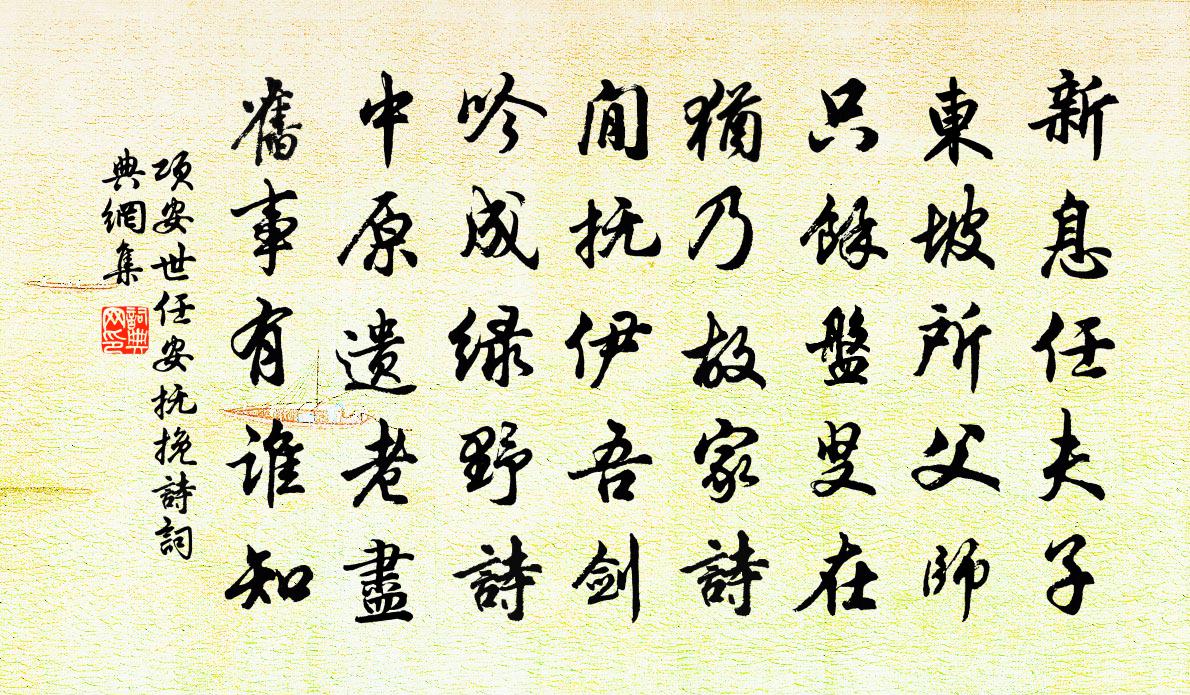 新息任夫子
東坡所父師
只餘盤叟在
猶乃故家詩
閒抚伊吾剑
吟成绿野詩
中原遗老盡
舊事有誰知
項安世任安抚挽詩詞
典網集
詞典
网印